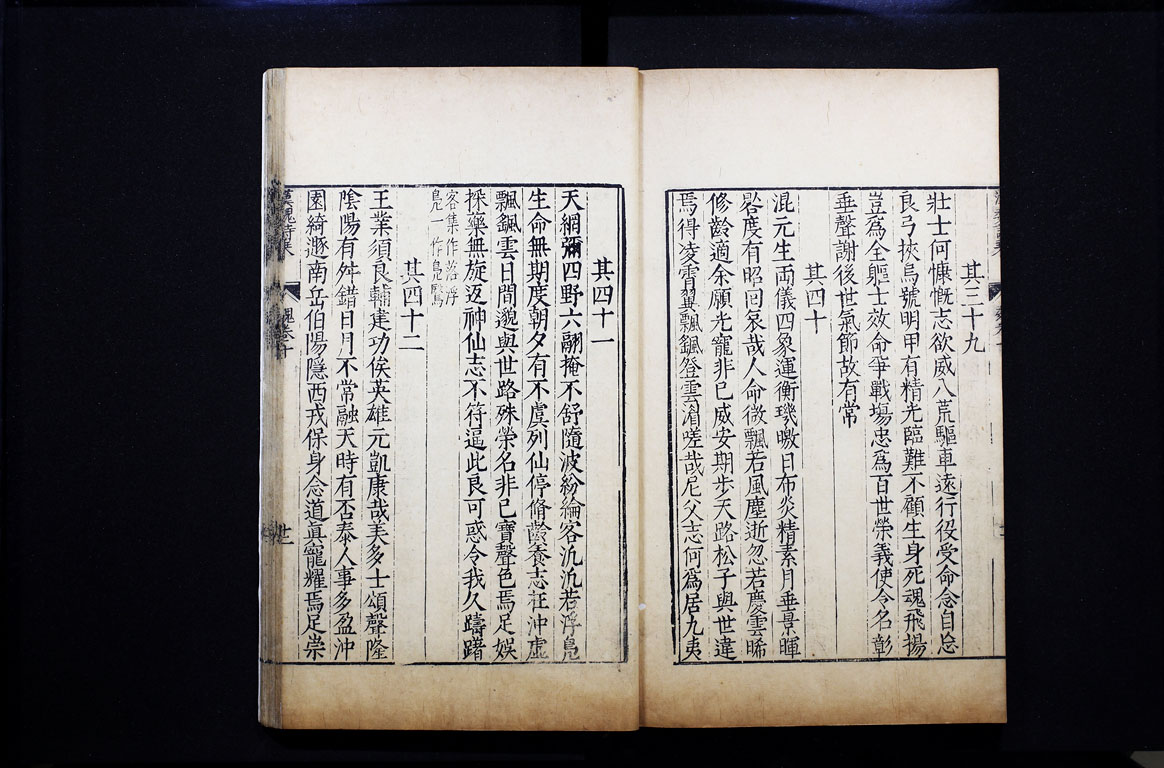 其三十九
壯士何慷慨志欲威八荒驅車遠行役受命念自忘
良弓挾烏號明甲有精光臨難不顧生身死魂飛揚
豈爲全軀士效命爭戰塲忠爲百世榮義使令名彰
垂聲謝後世氣節故有常
其四十
混元生両儀四象運衡璣曒日布炎精素月垂景暉
晷度有昭回哀哉人命微飄若風塵逝忽若慶雲晞
修齡適余願光寵非已威安期步天路松子與世違
焉得凌霄翼飄颻登雲湄嗟哉尼父志何爲居九夷
其四十一
天網彌四野六翮掩不舒隨波紛綸客汎汎若浮鳧
生命無期度朝夕有不虞列仙停脩齡養志在沖虛
飄颻雲日間邈與世路殊榮名非已寶聲色焉足娛
採藥無旋返神仙志不符逼此良可惑令我久躊躇
客集作若浮
鳧一作鳧鷖
其四十二
王業須良輔建功俟英雄元凱康哉美多士頌聲隆
陰陽有舛錯日月不常融天時有否泰人事多盈沖
園綺遯南岳伯陽隱西戎保身念道眞寵耀焉足崇
魏卷十